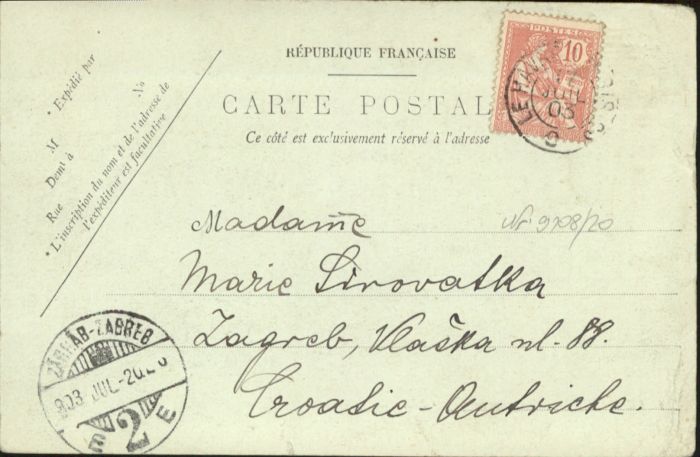 RÉPUBLIQUE FRANÇAISE
CARTE POSTALE
Ce côté est exclusivement réservé à l'adresse
* Expédié par
M
No
Demt à
Rue
* L'inscription du nom et de l'adresse de
l'expéditeur est facultative
10
LE HAVRE
JUIL
03
Nr 9708/20
Madame
Marie Sirovatka
Zagreb, Vlaška ul. 88.
Croatie-Autriche.
ZÁGRÁB-ZABREB
903 JUL-20
2
E